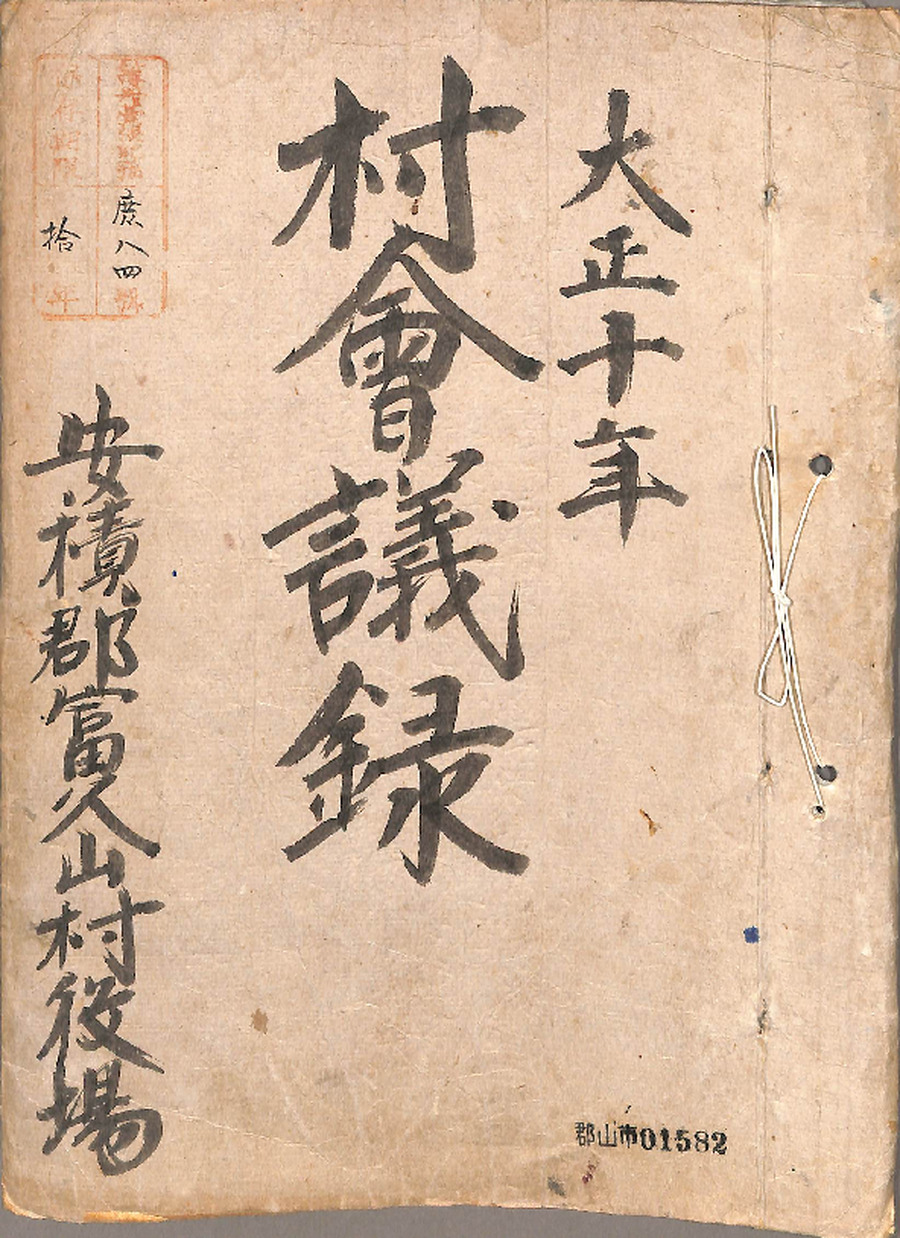 大正十年
村會議録
庶八四號
保存期限
拾年
安積郡富久山村役場
郡山市01582